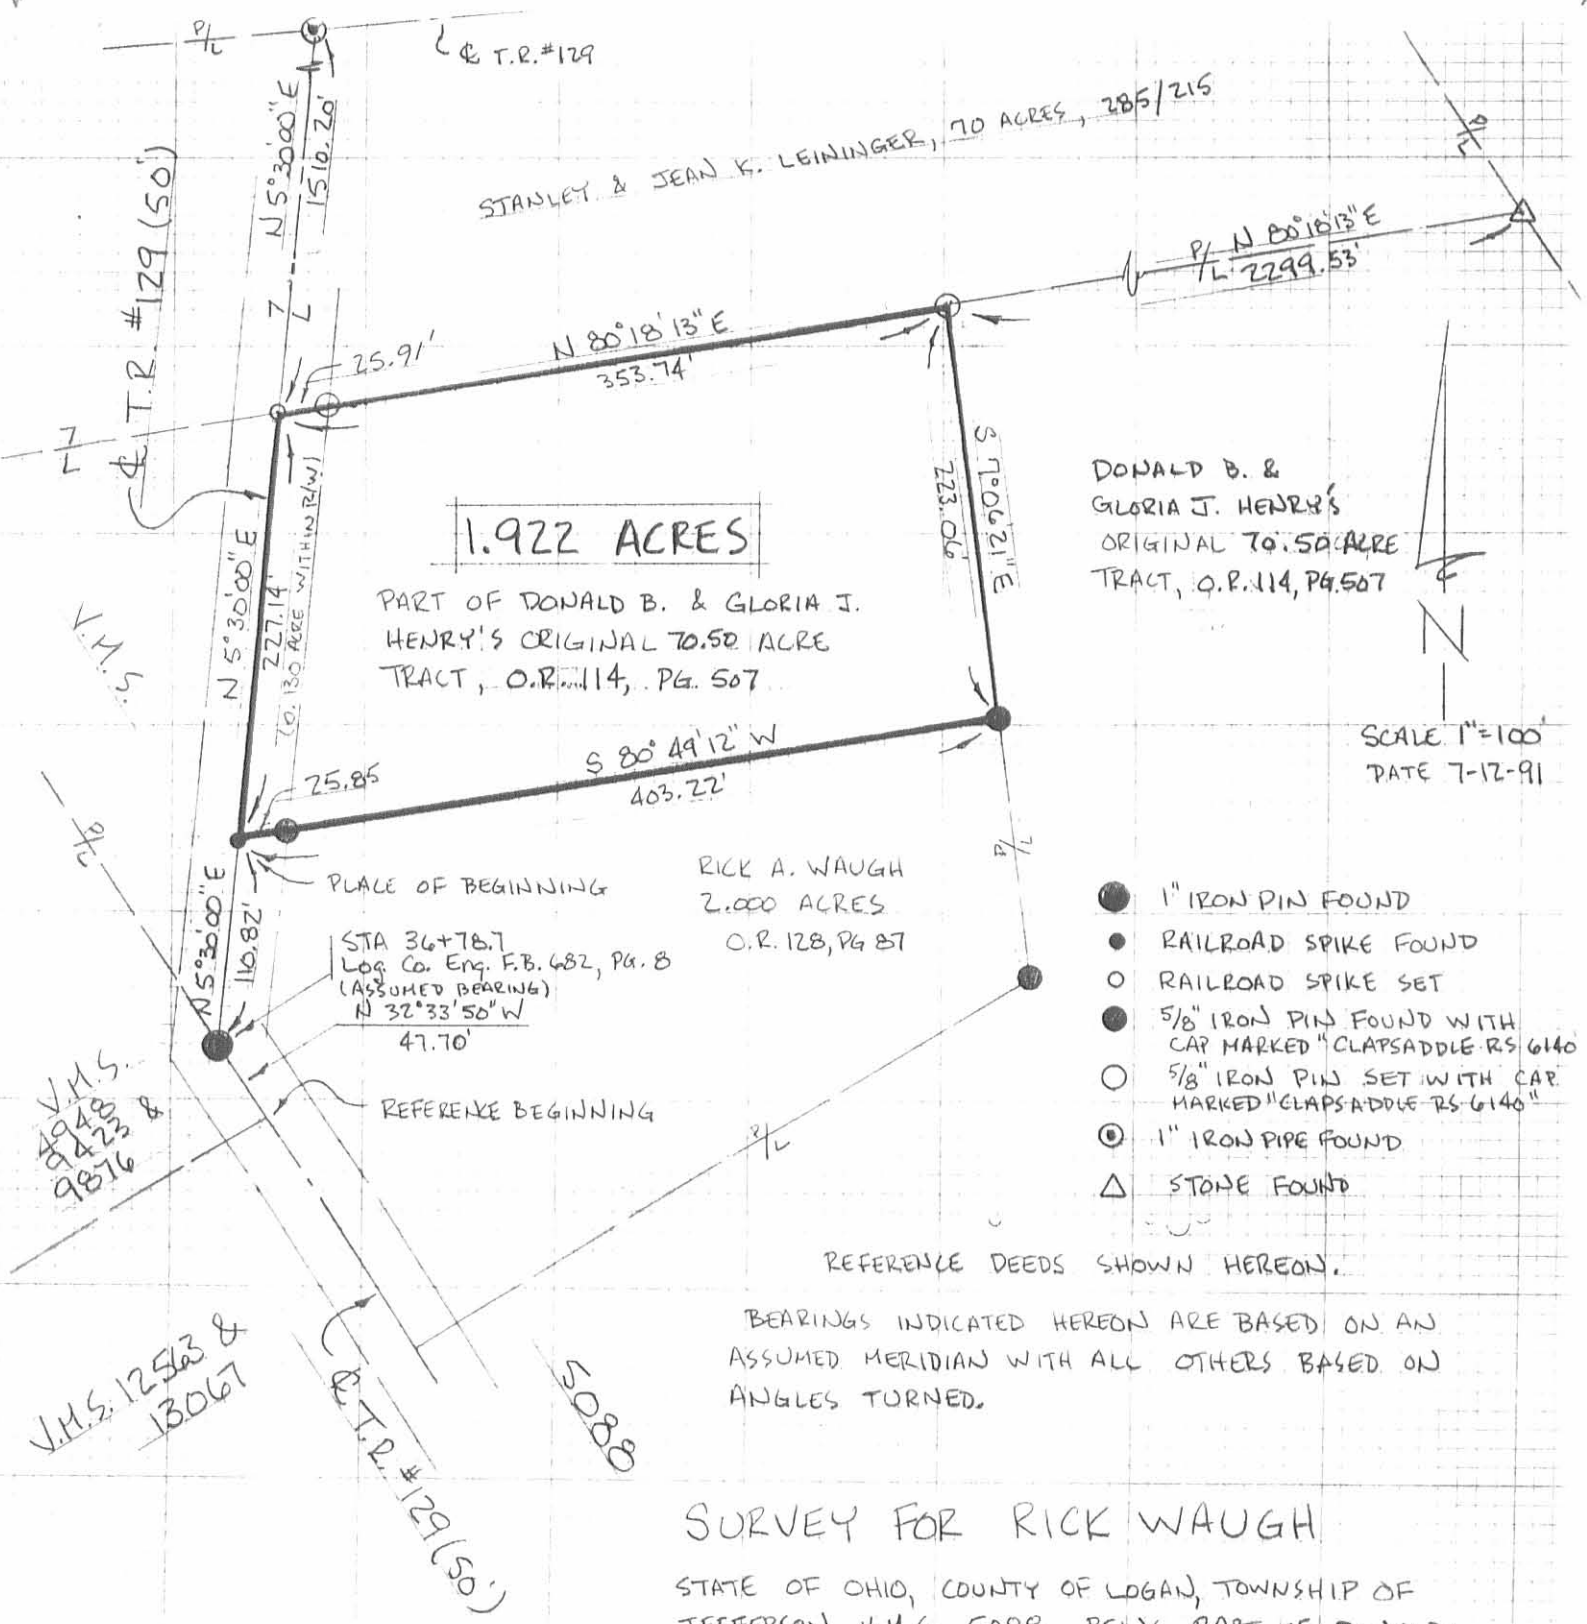 P/L
℄ T.R. #129
N 5°30'00" E
1510.20'
℄ T.R. #129 (50')
STANLEY & JEAN K. LEININGER, 70 ACRES, 285/215
P/L
P/L N 80°18'13" E
2299.53'
P/L
25.91'
N 80°18'13" E
353.74'
P/L
S 7°06'21" E
223.06'
DONALD B. &
GLORIA J. HENRY'S
ORIGINAL 70.50 ACRE
TRACT, O.R. 114, PG. 507
1.922 ACRES
PART OF DONALD B. & GLORIA J.
HENRY'S ORIGINAL 70.50 ACRE
TRACT, O.R. 114, PG. 507
N 5°30'00" E
227.14'
(0.130 ACRE WITHIN R/W)
V.M.S.
N
SCALE 1"=100'
DATE 7-12-91
S 80°49'12" W
403.22'
25.85
P/L
P/L
PLACE OF BEGINNING
RICK A. WAUGH
2.000 ACRES
O.R. 128, PG 87
N 5°30'00" E
110.82'
STA 36+78.7
Log. Co. Eng. F.B. 682, PG. 8
(ASSUMED BEARING)
N 32°33'50" W
47.70'
REFERENCE BEGINNING
V.M.S.
4948
9423 &
9876
P/L
1" IRON PIN FOUND
RAILROAD SPIKE FOUND
RAILROAD SPIKE SET
5/8" IRON PIN FOUND WITH
CAP MARKED "CLAPSADDLE RS 6140
5/8" IRON PIN SET WITH CAP
MARKED "CLAPSADDLE RS 6140"
1" IRON PIPE FOUND
STONE FOUND
REFERENCE DEEDS SHOWN HEREON.
BEARINGS INDICATED HEREON ARE BASED ON AN
ASSUMED MERIDIAN WITH ALL OTHERS BASED ON
ANGLES TURNED.
V.M.S. 12563 &
13067
℄ T.R. #129 (50')
5088
SURVEY FOR RICK WAUGH
STATE OF OHIO, COUNTY OF LOGAN, TOWNSHIP OF